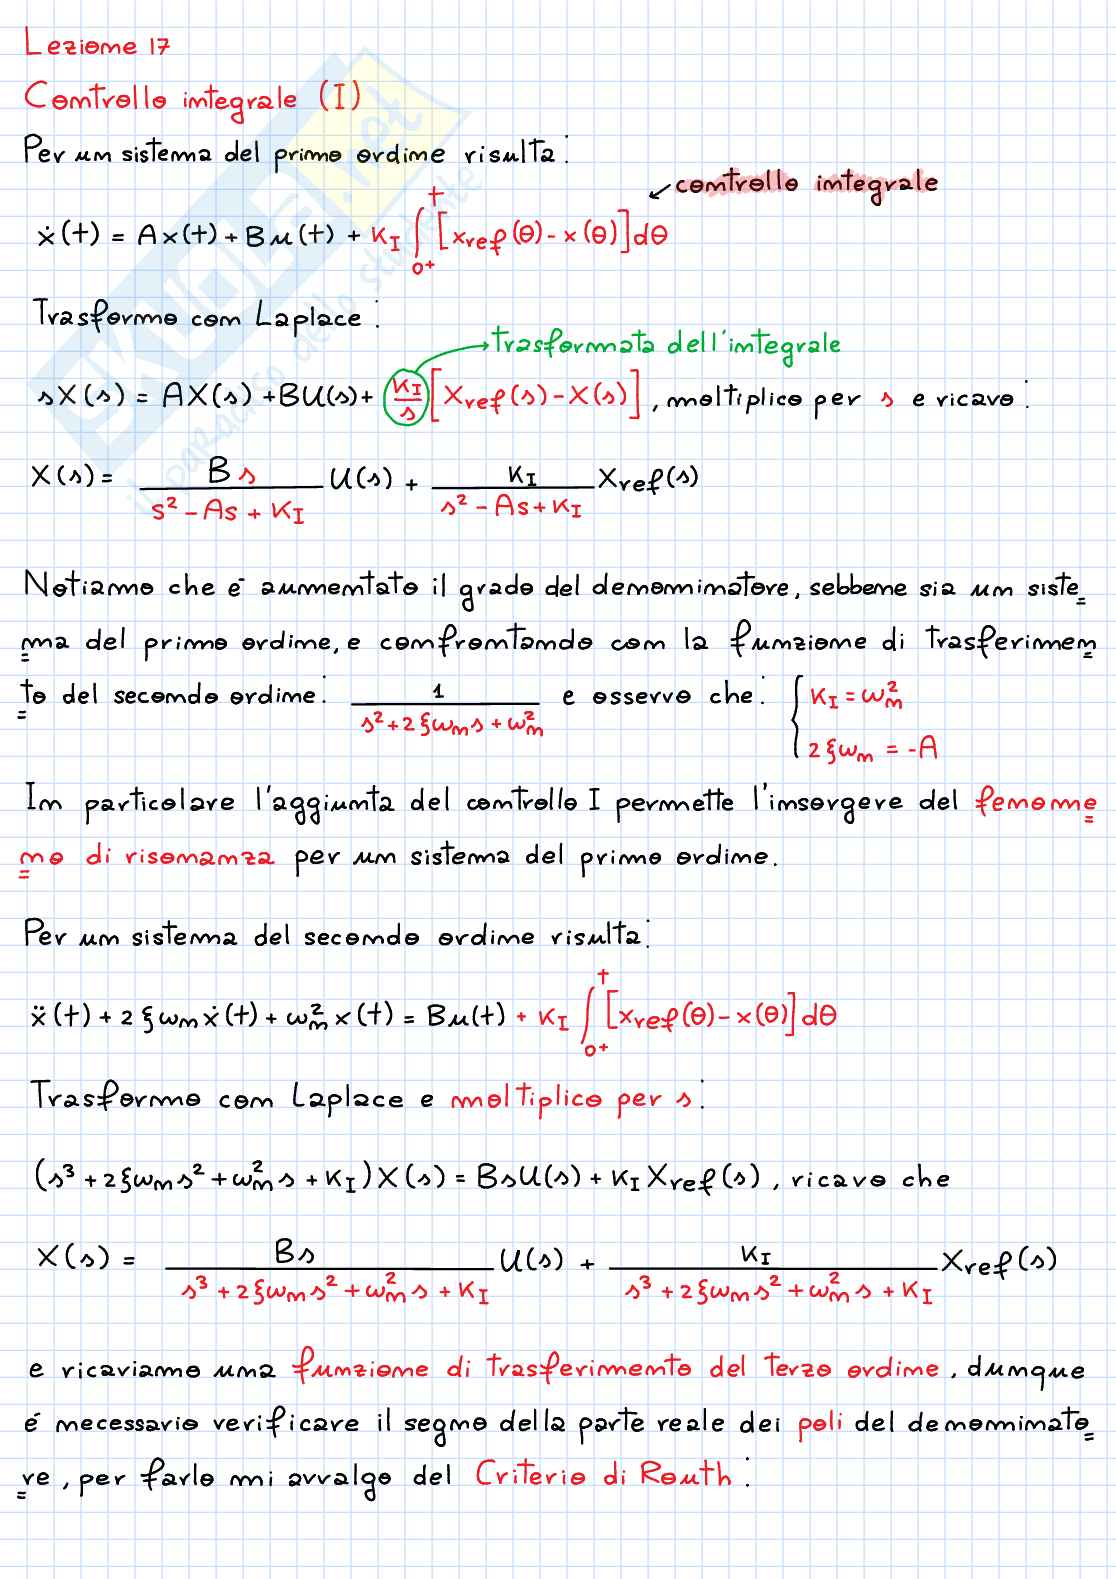 Lezione 17
Controllo integrale (I)
Per un sistema del primo ordine risulta:
controllo integrale
ẋ(t) = Ax(t) + Bu(t) + K_I ∫_{0+}^{t} [x_ref(θ) - x(θ)]dθ
Trasformo con Laplace:
trasformata dell'integrale
sX(s) = AX(s) + BU(s) + K_I/s [X_ref(s) - X(s)], moltiplico per s e ricavo:
X(s) = Bs/(s² - As + K_I) U(s) + K_I/(s² - As + K_I) X_ref(s)
Notiamo che é aumentato il grado del denominatore, sebbene sia un siste=
ma del primo ordine, e confrontando con la funzione di trasferimen=
to del secondo ordine: 1/(s² + 2ξω_n s + ω_n²) e osservo che: { K_I = ω_n²
2ξω_n = -A
In particolare l'aggiunta del controllo I permette l'insorgere del fenome=
no di risonanza per un sistema del primo ordine.
Per un sistema del secondo ordine risulta:
ẍ(t) + 2ξω_n ẋ(t) + ω_n² x(t) = Bu(t) + K_I ∫_{0+}^{t} [x_ref(θ) - x(θ)]dθ
Trasformo con Laplace e moltiplico per s:
(s³ + 2ξω_n s² + ω_n² s + K_I)X(s) = BsU(s) + K_I X_ref(s), ricavo che
X(s) = Bs/(s³ + 2ξω_n s² + ω_n² s + K_I) U(s) + K_I/(s³ + 2ξω_n s² + ω_n² s + K_I) X_ref(s)
e ricaviamo una funzione di trasferimento del terzo ordine, dunque
é necessario verificare il segno della parte reale dei poli del denominato=
re, per farlo mi avvalgo del Criterio di Routh:
SKUOLA.net
il paradiso dello studente